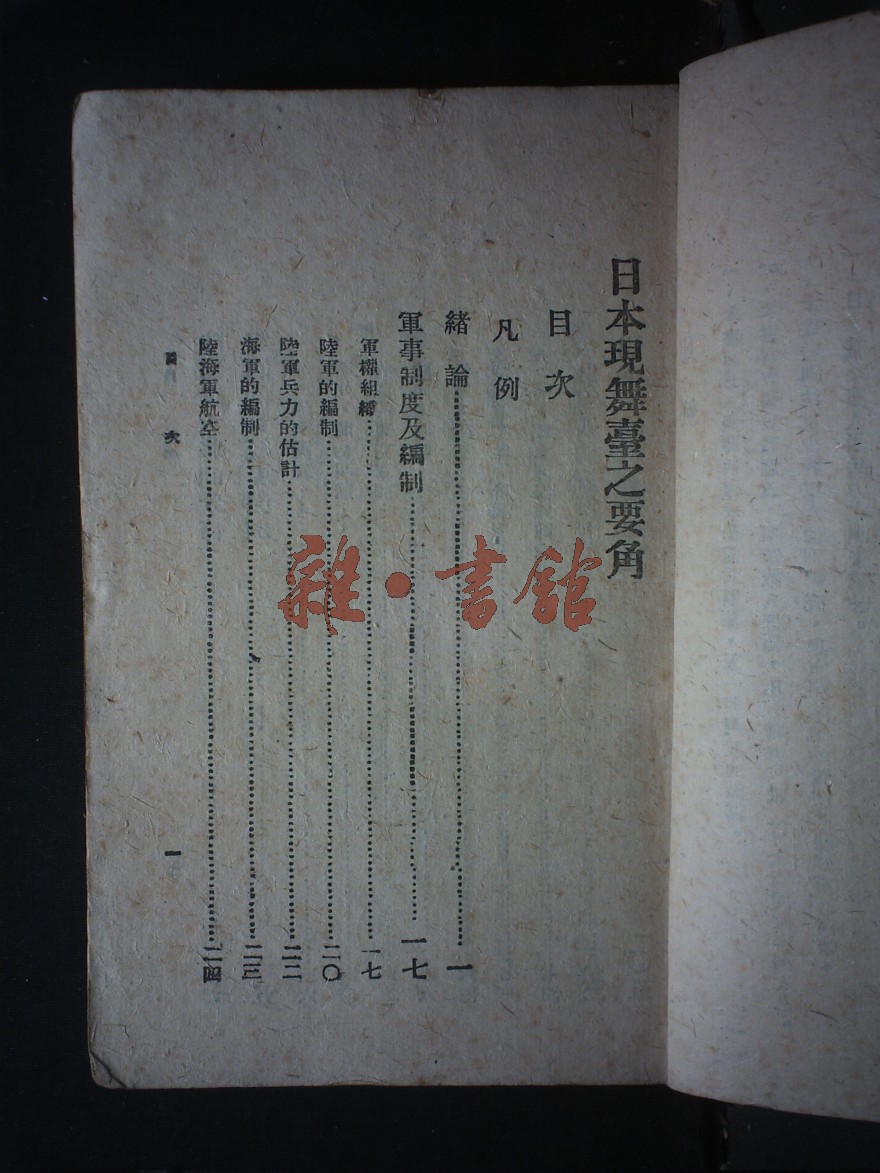 日本現舞臺之要角
目次
凡例
緒論……一
軍事制度及編制……一七
軍權組織……一七
陸軍的編制……二〇
陸軍兵力的估計……二二
海軍的編制……二三
陸海軍航空……二四
目次
一
雜·書館